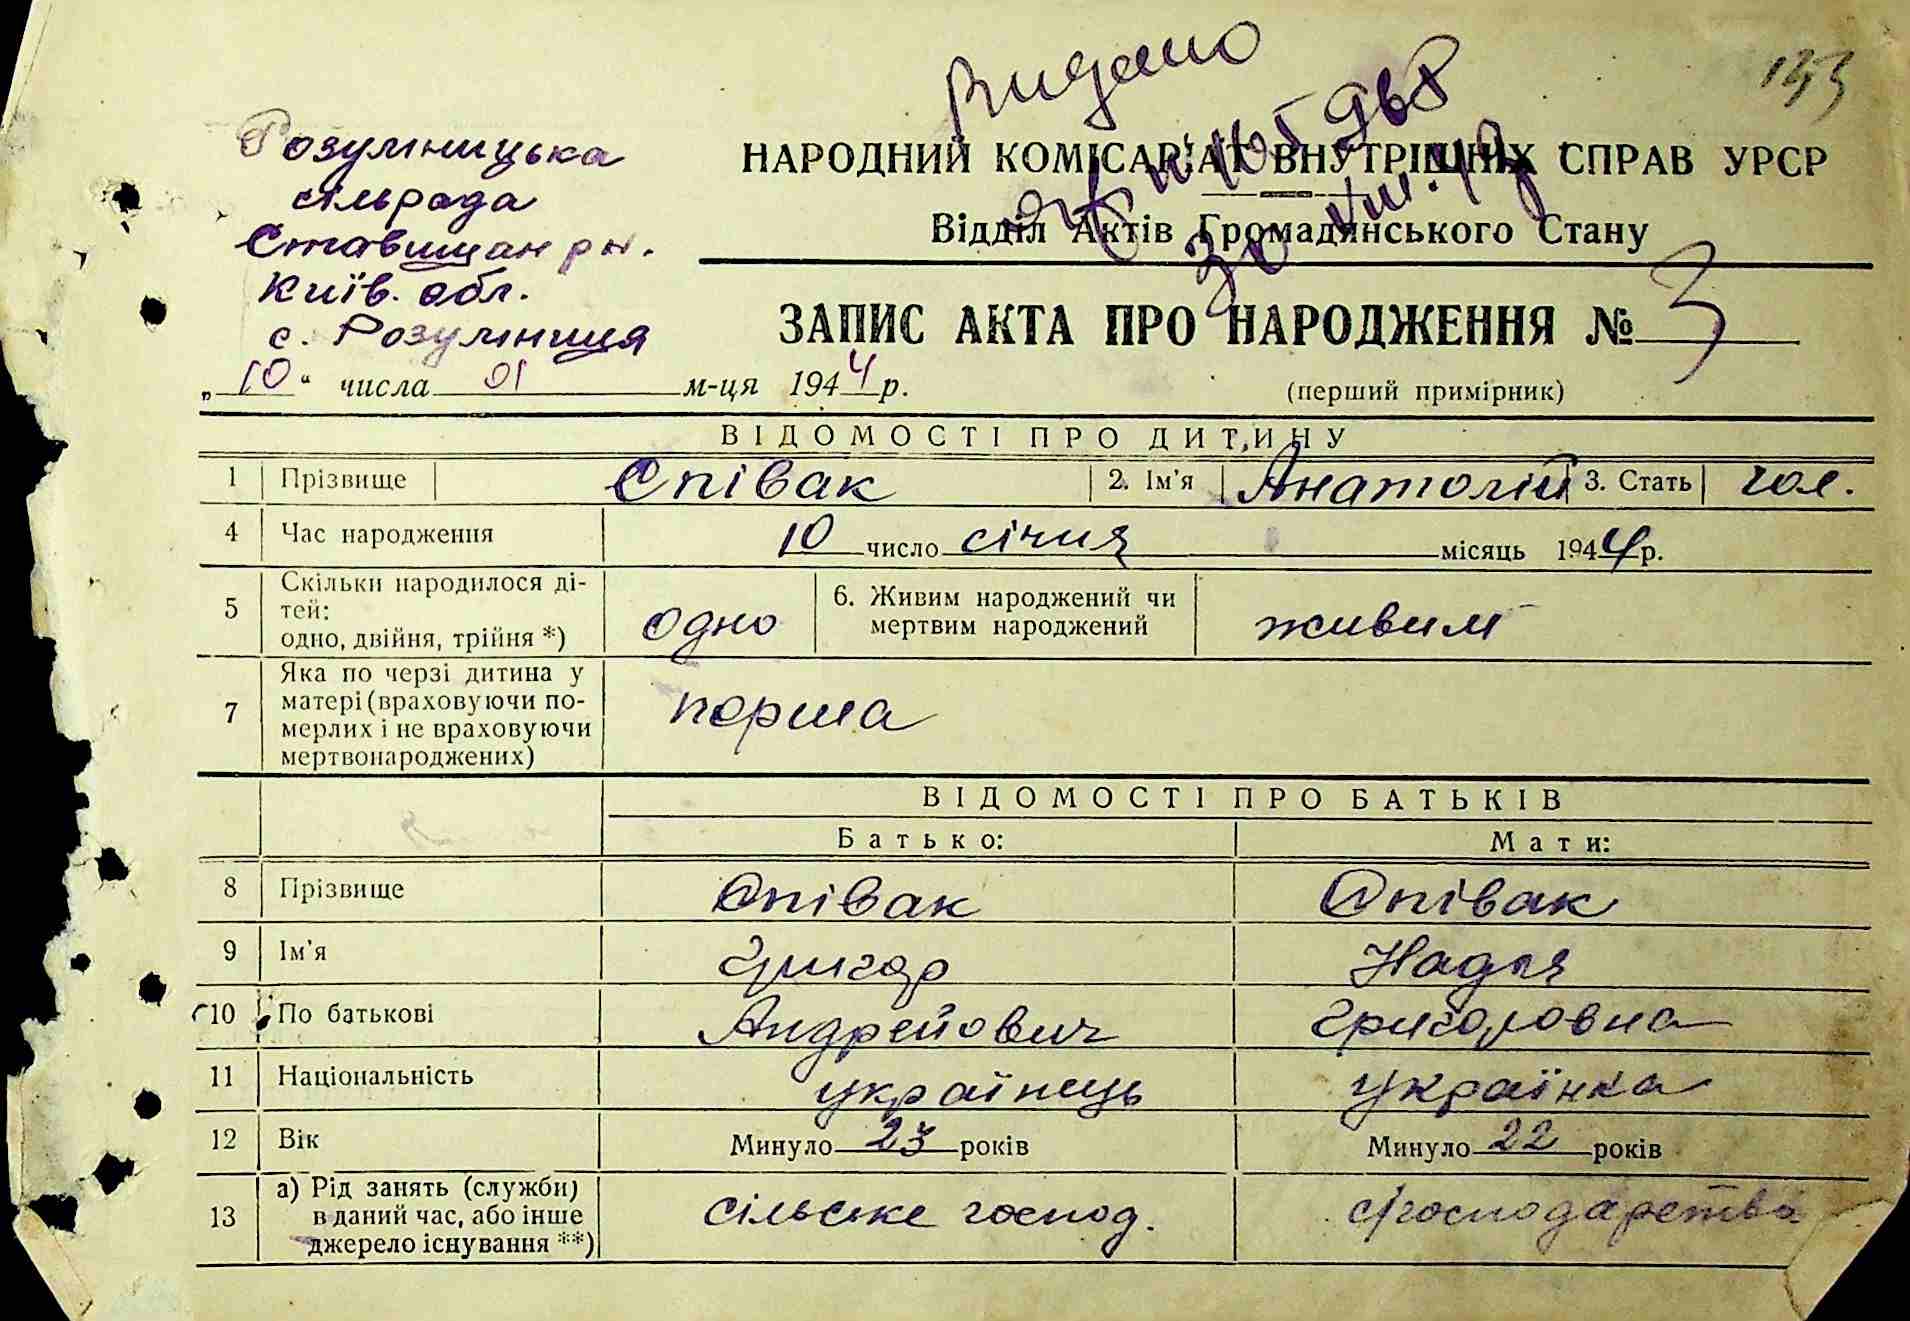 Видано
193
Розумницька
сільрада
Ставищан рн.
Київ. обл.
с. Розумниця
„ 10 “ числа 01 м-ця 1944 р.
НАРОДНИЙ КОМІСАРІАТ ВНУТРІШНІХ СПРАВ УРСР
Відділ Актів Громадянського Стану
30 VIII.
ЗАПИС АКТА ПРО НАРОДЖЕННЯ № 3
(перший примірник)
ВІДОМОСТІ ПРО ДИТИНУ
1 Прізвище Співак 2. Ім’я Анатолій 3. Стать чол.
4 Час народження 10 число січня місяць 1944 р.
5 Скільки народилося ді-
тей:
одно, двійня, трійня *) одно 6. Живим народжений чи
мертвим народжений живим
7 Яка по черзі дитина у
матері (враховуючи по-
мерлих і не враховуючи
мертвонароджених) перша
ВІДОМОСТІ ПРО БАТЬКІВ
Батько: Мати:
8 Прізвище Співак Співак
9 Ім’я Григор Надія
10 По батькові Андрейович Григоровна
11 Національність українець українка
12 Вік Минуло 23 років Минуло 22 років
13 а) Рід занять (служби)
в даний час, або інше
джерело існування **) сільське господ. с/господарства